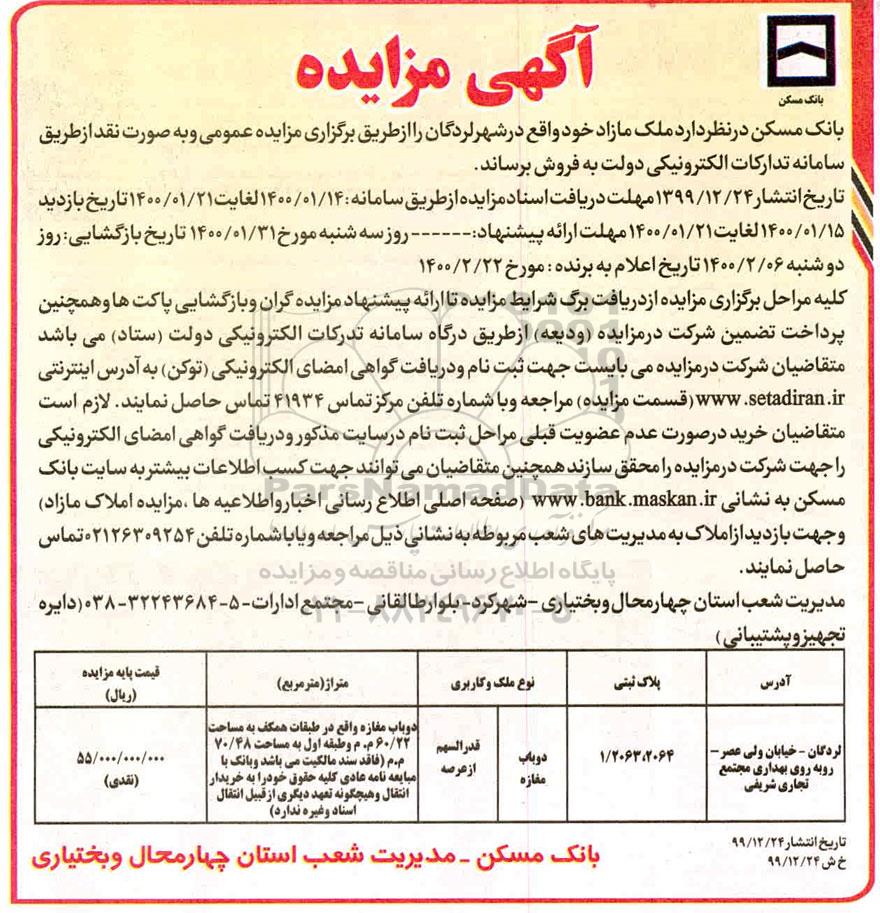 آگهی مزایده
بانک مسکن
بانک مسکن درنظردارد ملک مازاد خود واقع درشهرلردگان را ازطریق برگزاری مزایده عمومی وبه صورت نقد ازطریق
سامانه تدارکات الکترونیکی دولت به فروش برساند.
تاریخ انتشار ۱۳۹۹/۱۲/۲۴ مهلت دریافت اسناد مزایده ازطریق سامانه: ۱۴۰۰/۰۱/۱۴ لغایت ۱۴۰۰/۰۱/۲۱ تاریخ بازدید
۱۴۰۰/۰۱/۱۵ لغایت ۱۴۰۰/۰۱/۲۱ مهلت ارائه پیشنهاد:------ روز سه شنبه مورخ ۱۴۰۰/۰۱/۳۱ تاریخ بازگشایی: روز
دوشنبه ۱۴۰۰/۲/۰۶ تاریخ اعلام به برنده: مورخ ۱۴۰۰/۲/۲۲
کلیه مراحل برگزاری مزایده ازدریافت برگ شرایط مزایده تا ارائه پیشنهاد مزایده گران وبازگشایی پاکت ها وهمچنین
پرداخت تضمین شرکت درمزایده (ودیعه) ازطریق درگاه سامانه تدرکات الکترونیکی دولت (ستاد) می باشد
متقاضیان شرکت درمزایده می بایست جهت ثبت نام ودریافت گواهی امضای الکترونیکی (توکن) به آدرس اینترنتی
www.setadiran.ir (قسمت مزایده) مراجعه وبا شماره تلفن مرکز تماس ۴۱۹۳۴ تماس حاصل نمایند. لازم است
متقاضیان خرید درصورت عدم عضویت قبلی مراحل ثبت نام درسایت مذکور ودریافت گواهی امضای الکترونیکی
را جهت شرکت درمزایده را محقق سازند همچنین متقاضیان می توانند جهت کسب اطلاعات بیشتر به سایت بانک
مسکن به نشانی www.bank.maskan.ir (صفحه اصلی اطلاع رسانی اخبار واطلاعیه ها ،مزایده املاک مازاد)
وجهت بازدید ازاملاک به مدیریت های شعب مربوطه به نشانی ذیل مراجعه ویا باشماره تلفن ۰۲۱۲۶۳۰۹۲۵۴ تماس
حاصل نمایند.
مدیریت شعب استان چهارمحال وبختیاری -شهرکرد- بلوارطالقانی -مجتمع ادارات-۵-۳۲۲۴۳۶۸۴-۰۳۸ (دایره
تجهیزوپشتیبانی)
آدرس
پلاک ثبتی
نوع ملک وکاربری
متراژ(مترمربع)
قیمت پایه مزایده
(ریال)
لردگان - خیابان ولی عصر-
روبه روی بهداری مجتمع
تجاری شریفی
۱/۲۰۶۳،۲۰۶۴
دوباب
مغازه
قدرالسهم
ازعرصه
دوباب مغازه واقع در طبقات همکف به مساحت
۶۰/۲۲ م.م وطبقه اول به مساحت ۷۰/۴۸
م.م (فاقد سند مالکیت می باشد وبانک با
مبایعه نامه عادی کلیه حقوق خودرا به خریدار
انتقال وهیچگونه تعهد دیگری ازقبیل انتقال
اسناد وغیره ندارد)
۵۵/۰۰۰/۰۰۰/۰۰۰
(نقدی)
تاریخ انتشار ۹۹/۱۲/۲۴
خ ش ۹۹/۱۲/۲۴
بانک مسکن - مدیریت شعب استان چهارمحال وبختیاری
ParsNamadData
پایگاه اطلاع رسانی مناقصه و مزایده